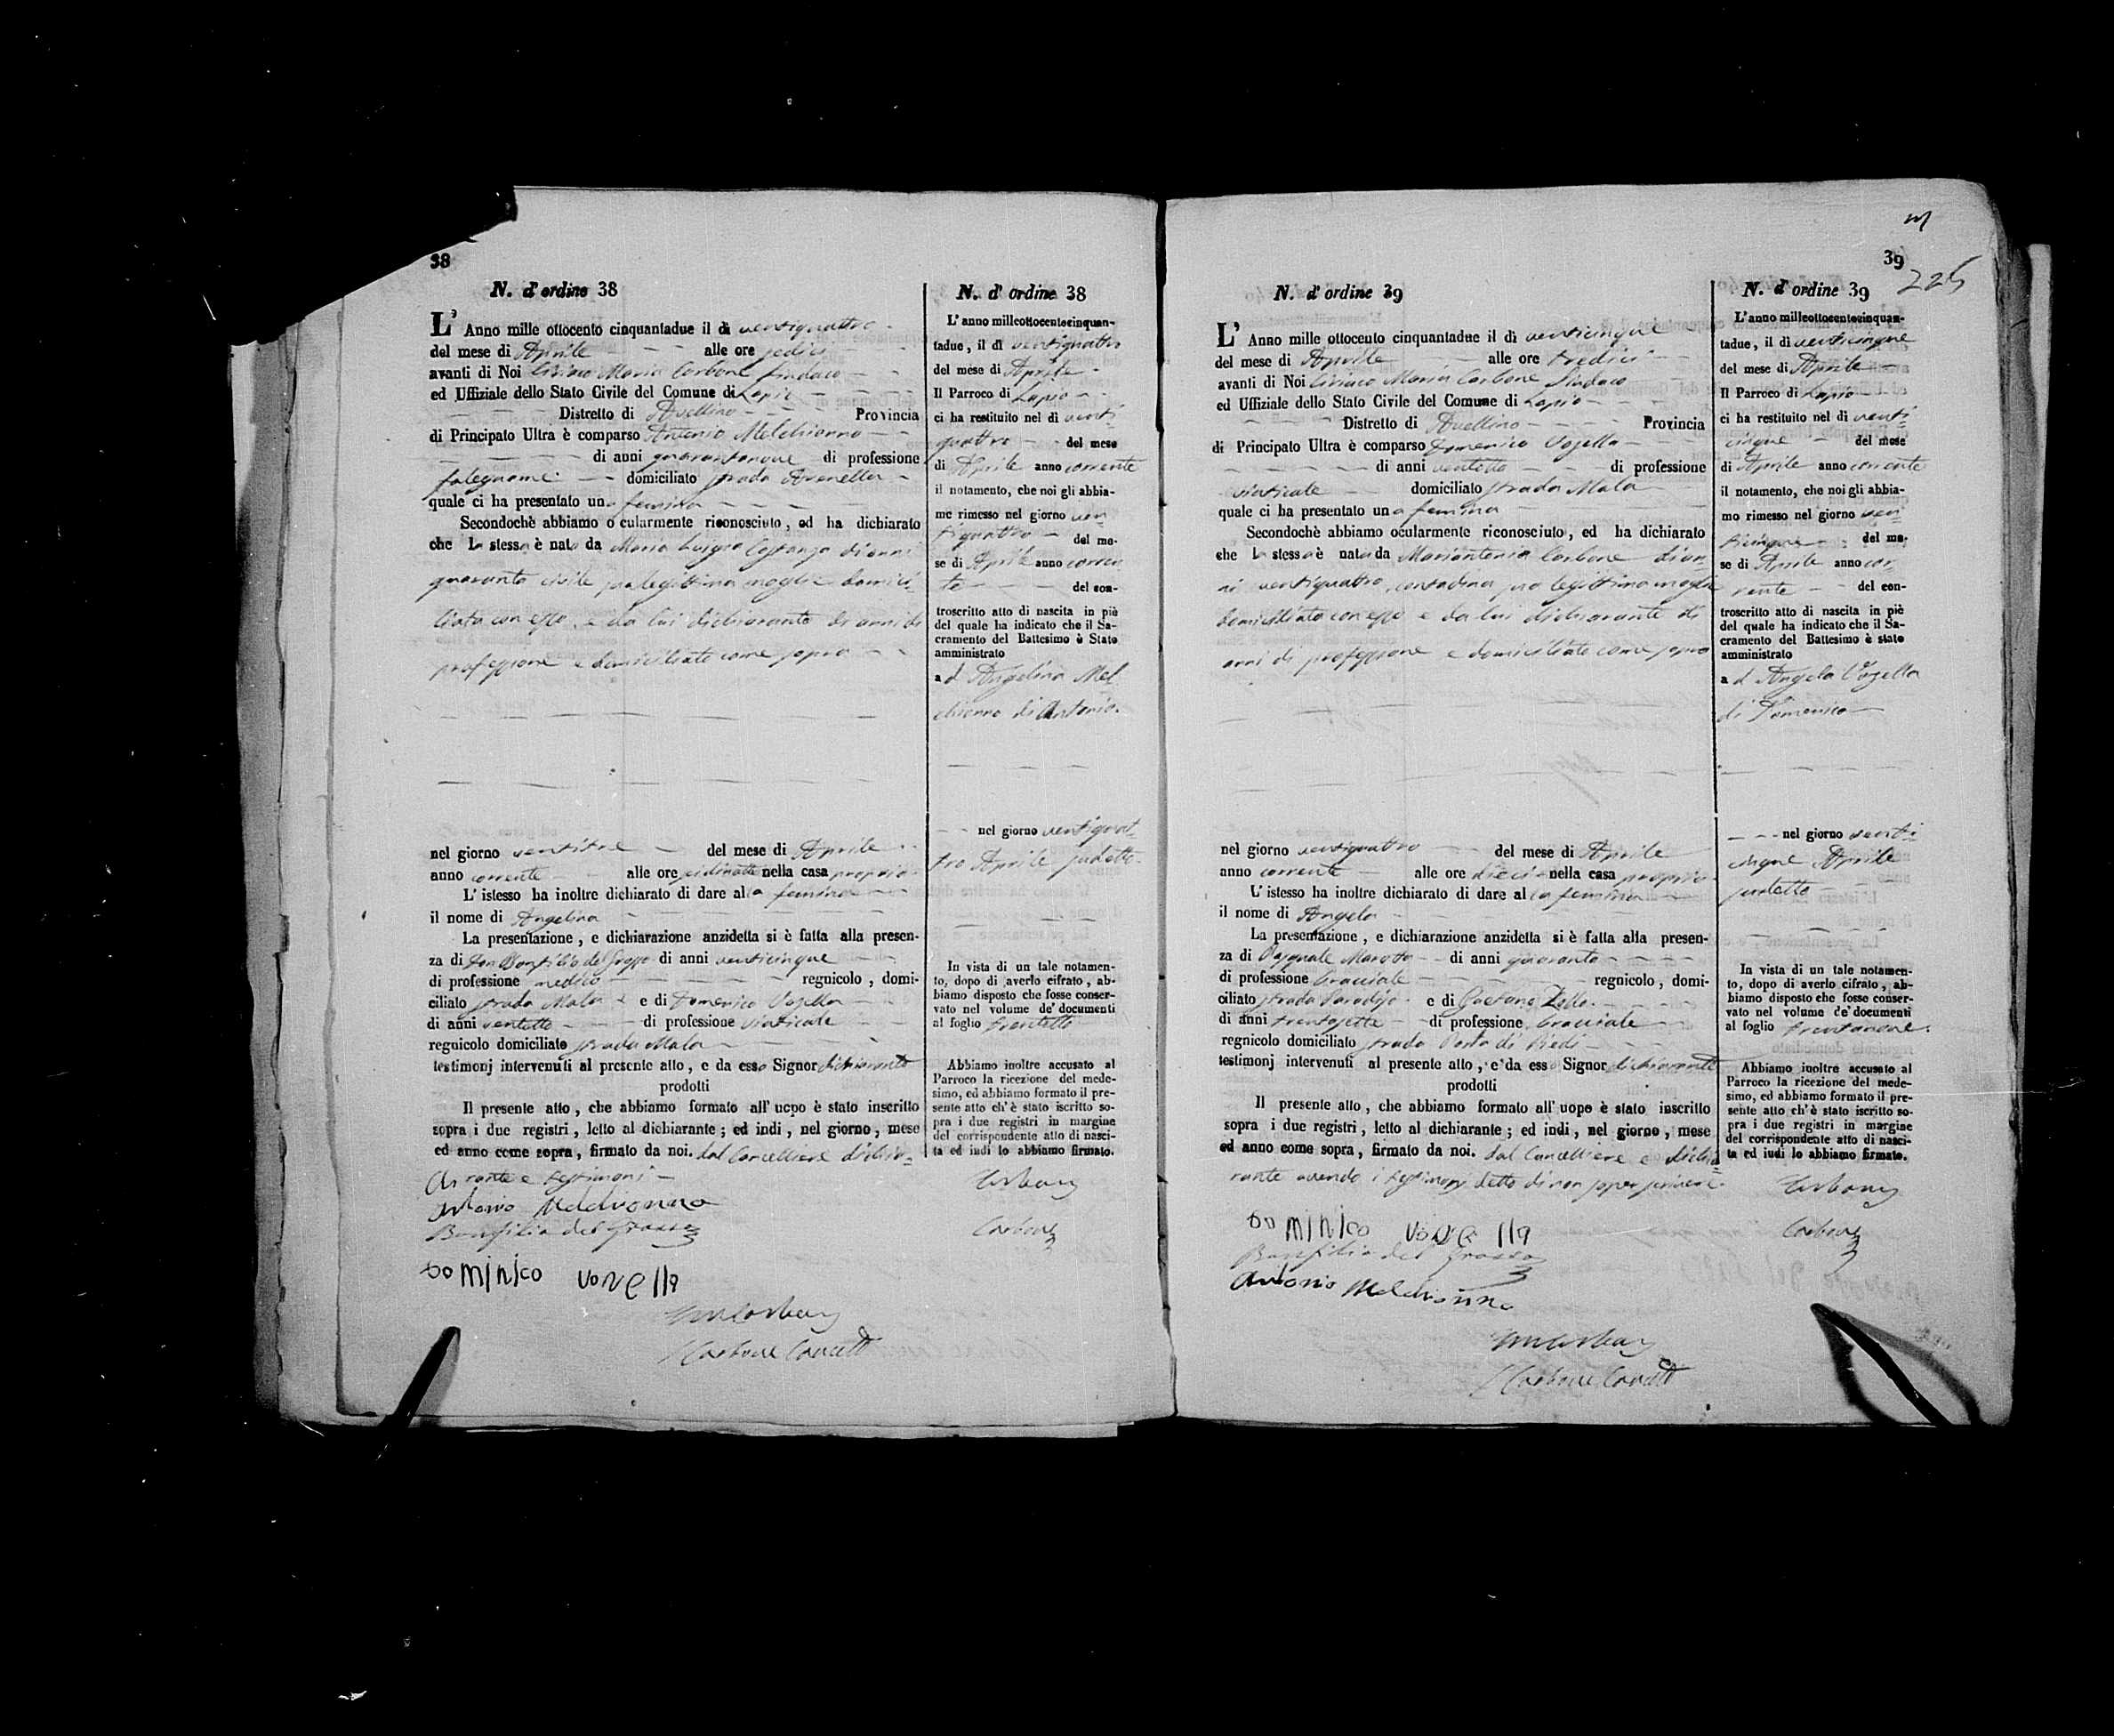 38
N. d' ordine 38
L' Anno mille ottocento cinquantadue il dì ventiquattro
del mese di Aprile alle ore sedici
avanti di Noi Ciriaco Maria Carbone Sindaco
ed Uffiziale dello Stato Civile del Comune di Lapio
Distretto di Avellino Provincia
di Principato Ultra è comparso Antonio Melchionno
di anni quarantanove di professione
falegname domiciliato strada Arenella
quale ci ha presentato una femina
Secondochè abbiamo ocularmente riconosciuto, ed ha dichiarato
che la stessa è nata da Maria Luigia Costanzo di anni
quaranta civile sua legittima moglie domici-
liata con esso, e da lui dichiarante di anni di
professione e domiciliato come sopra
nel giorno ventitre del mese di Aprile
anno corrente alle ore nella casa propria
L' istesso ha inoltre dichiarato di dare alla femina
il nome di Angelina
La presentazione, e dichiarazione anzidetta si è fatta alla presen-
za di Don Bonfilio del Grosso di anni venticinque
di professione medico regnicolo, domi-
ciliato strada Mala e di Domenico Vozella
di anni ventotto di professione viaticale
regnicolo domiciliato strada Mala
testimonj intervenuti al presente atto, e da esso Signor dichiarante
prodotti
Il presente atto, che abbiamo formato all' uopo è stato inscritto
sopra i due registri, letto al dichiarante; ed indi, nel giorno, mese
ed anno come sopra, firmato da noi. dal Cancelliere dichia-
rante e testimoni
Antonio Melchionna
Bonfilio del Grosso
Dominico vozella
Carbone Cancell
N. d' ordine 38
L' anno milleottocentocinquan-
tadue, il dì ventiquattro
del mese di Aprile
Il Parroco di Lapio
ci ha restituito nel dì venti-
quattro del mese
di Aprile anno corrente
il notamento, che noi gli abbia-
mo rimesso nel giorno ven-
tiquattro del me-
se di Aprile anno corren
te del con-
troscritto atto di nascita in piè
del quale ha indicato che il Sa-
cramento del Battesimo è Stato
amministrato
ad Angelina Mel
chionno di Antonio.
nel giorno ventiquat-
tro Aprile sudetto
In vista di un tale notamen-
to, dopo di averlo cifrato, ab-
biamo disposto che fosse conser-
vato nel volume de' documenti
al foglio trentotto
Abbiamo inoltre accusato al
Parroco la ricezione del mede-
simo, ed abbiamo formato il pre-
sente atto ch' è stato iscritto so-
pra i due registri in margine
del corrispondente atto di nasci-
ta ed indi lo abbiamo firmato.
Carbone
Carbone
39
225
N. d' ordine 39
L' Anno mille ottocento cinquantadue il dì venticinque
del mese di Aprile alle ore tredici
avanti di Noi Ciriaco Maria Carbone Sindaco
ed Uffiziale dello Stato Civile del Comune di Lapio
Distretto di Avellino Provincia
di Principato Ultra è comparso Domenico Vozella
di anni ventotto di professione
viaticale domiciliato strada Mala
quale ci ha presentato una femina
Secondochè abbiamo ocularmente riconosciuto, ed ha dichiarato
che la stessa è nata da Mariantonia Carbone di an-
ni ventiquattro, contadina sua legittima moglie
domiciliata con esso e da lui dichiarante di
anni di professione e domiciliato come sopra
nel giorno ventiquattro del mese di Aprile
anno corrente alle ore dieci nella casa propria
L' istesso ha inoltre dichiarato di dare alla femina
il nome di Angela
La presentazione, e dichiarazione anzidetta si è fatta alla presen-
za di Pasquale Marotta di anni quaranta
di professione bracciale regnicolo, domi-
ciliato strada Paradiso e di Gaetano Zello
di anni trentasette di professione bracciale
regnicolo domiciliato strada Porta di Piedi
testimonj intervenuti al presente atto, e da esso Signor dichiarante
prodotti
Il presente atto, che abbiamo formato all' uopo è stato inscritto
sopra i due registri, letto al dichiarante; ed indi, nel giorno, mese
ed anno come sopra, firmato da noi. dal Cancelliere e dichia-
rante avendo i testimonj detto di non saper scrivere.
Dominico vozella
Bonfilio del Grosso
Antonio Melchionna
Carbone Cancell
N. d' ordine 39
L' anno milleottocentocinquan-
tadue, il dì venticinque
del mese di Aprile
Il Parroco di Lapio
ci ha restituito nel dì venti-
cinque del mese
di Aprile anno corrente
il notamento, che noi gli abbia-
mo rimesso nel giorno ven-
ticinque del me-
se di Aprile anno cor-
rente del con-
troscritto atto di nascita in piè
del quale ha indicato che il Sa-
cramento del Battesimo è stato
amministrato
ad Angela Vozella
di Domenico
nel giorno venti-
cinque Aprile
sudetto
In vista di un tale notamen-
to, dopo di averlo cifrato, ab-
biamo disposto che fosse conser-
vato nel volume de' documenti
al foglio trentanove.
Abbiamo inoltre accusato al
Parroco la ricezione del mede-
simo, ed abbiamo formato il pre-
sente atto ch' è stato iscritto so-
pra i due registri in margine
del corrispondente atto di nasci-
ta ed indi lo abbiamo firmato.
Carbone
Carbone